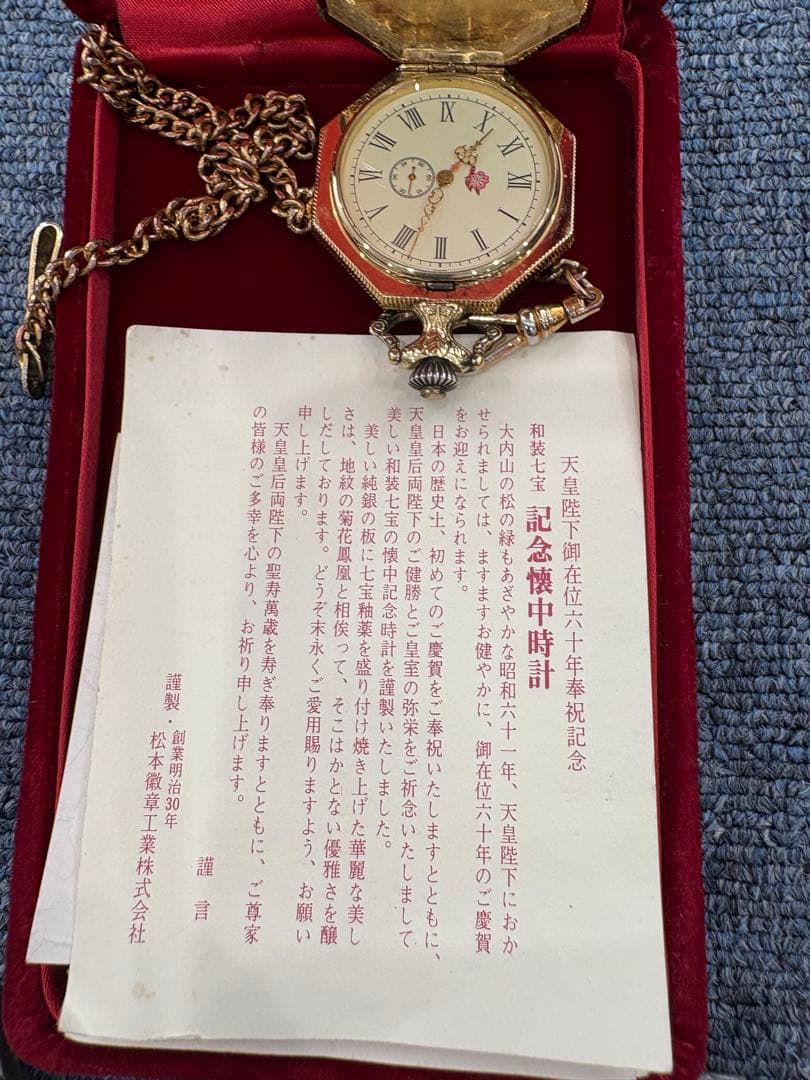 天皇陛下御在位六十年奉祝記念
和装七宝 記念懐中時計
大内山の松の緑もあざやかな昭和六十一年、天皇陛下におか
せられましては、ますますお健やかに、御在位六十年のご慶賀
をお迎えになられます。
日本の歴史上、初めてのご慶賀をご奉祝いたしますとともに、
天皇皇后両陛下のご健勝とご皇室の弥栄をご祈念いたしまして
美しい和装七宝の懐中記念時計を謹製いたしました。
美しい純銀の板に七宝釉薬を盛り付け焼き上げた華麗な美し
さは、地紋の菊花鳳凰と相俟って、そこはかとない優雅さを醸
しだしております。どうぞ末永くご愛用賜りますよう、お願い
申し上げます。
天皇皇后両陛下の聖寿萬歳を寿ぎ奉りますとともに、ご尊家
の皆様のご多幸を心より、お祈り申し上げます。
謹言
謹製・創業明治30年
松本徽章工業株式会社
XII
I
II
III
IIII
V
VI
VII
VIII
IX
X
XI